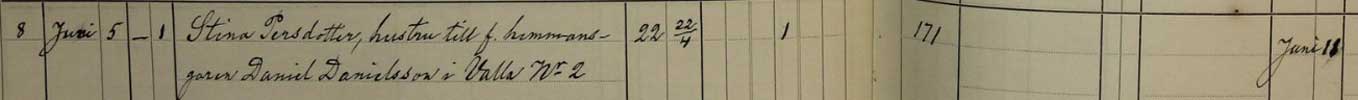 8 Juni 5 – 1 Stina Persdotter, hustru till f. hemmans- 22 22/4 1 171 Juni 11
garen Daniel Danielsson i Valla Nr 2